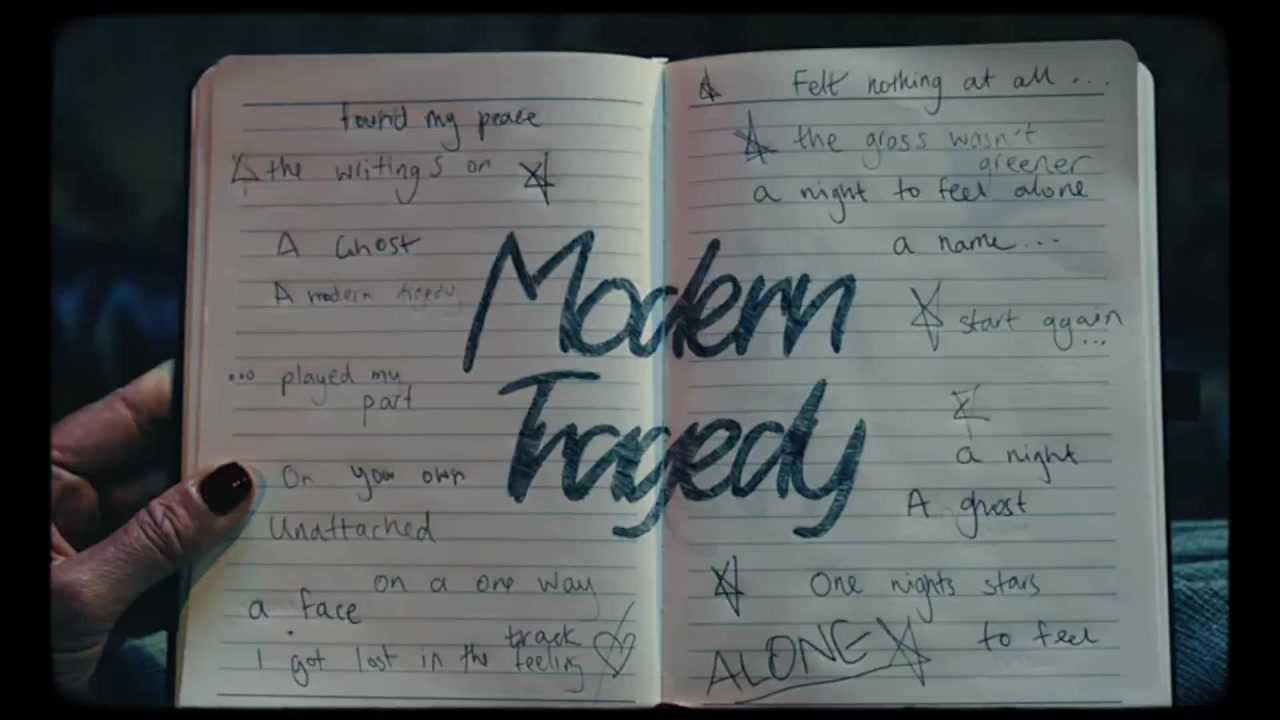 found my peace
the writing's on
A Ghost
A modern tragedy
... played my
part
On your own
Unattached
on a one way
a face
track
I got lost in the feeling
Felt nothing at all ...
the grass wasn't
greener
a night to feel alone
a name...
start again
...
a night
A ghost
One nights stars
to feel
ALONE
Modern
Tragedy